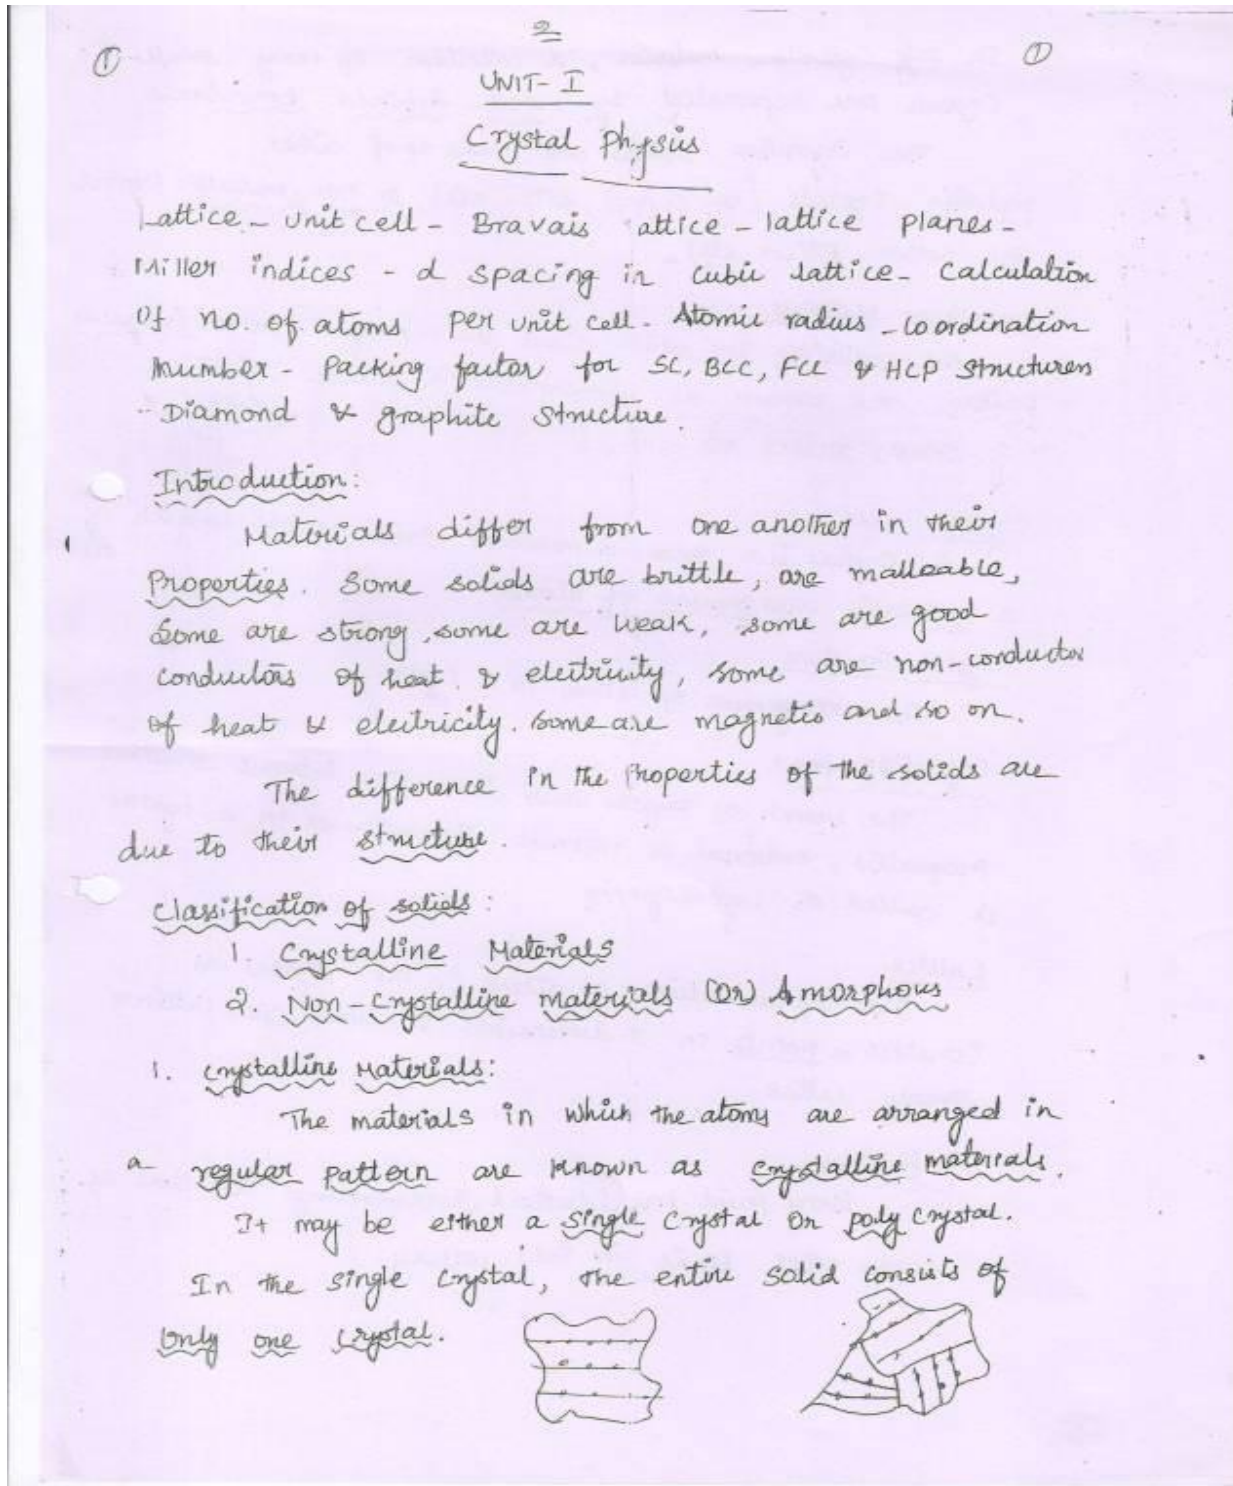 2
① ①
UNIT- I
Crystal Physis
Lattice - unit cell - Bravais attice - lattice planes -
Miller indices - d spacing in cubic lattice - calculation
of no. of atoms per unit cell. Atomic radius - coordination
number - Packing factor for SC, BCC, FCC & HCP structures
- Diamond & graphite structure.
Introduction:
Materials differ from one another in their
Properties. Some solids are brittle, are malleable,
some are strong, some are weak, some are good
conductors of heat & electricity, some are non-conductor
of heat & electricity. some are magnetis and so on.
The difference in the Properties of the solids are
due to their structure.
Classification of solids:
1. Crystalline Materials
2. Non-crystalline materials (or) Amorphous
1. crystalline Materials:
The materials in which the atoms are arranged in
a regular pattern are known as crystalline materials.
It may be either a single crystal or poly crystal.
In the single crystal, the entire solid consists of
only one crystal.